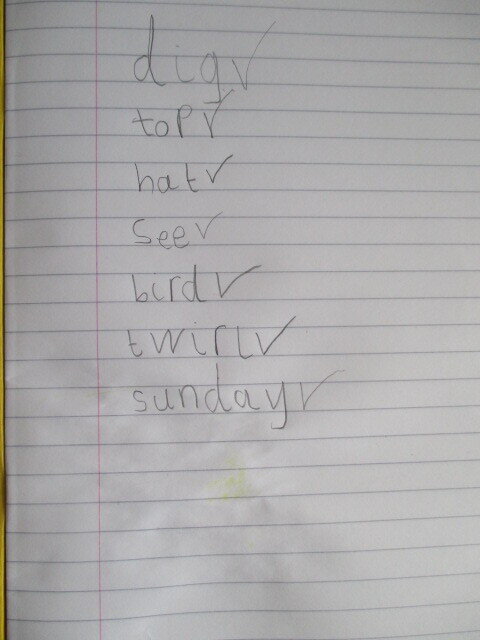 dig ✓
top ✓
hat ✓
see ✓
bird ✓
twirl ✓
sunday ✓